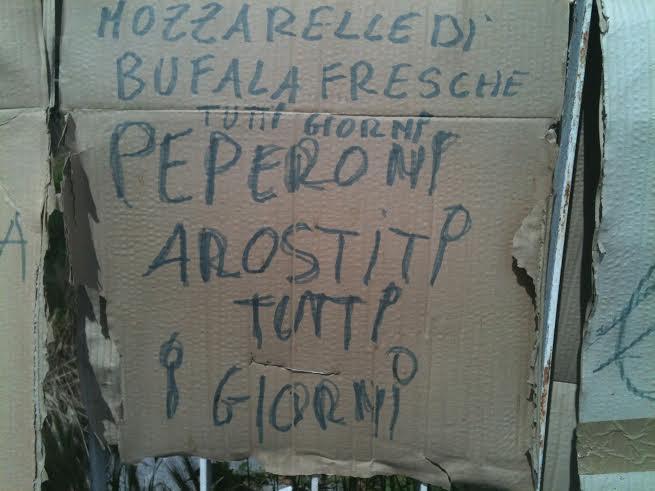 MOZZARELLE DI
BUFALA FRESCHE
TUTTI GIORNI
PEPERONI
AROSTITI
TUTTI
I GIORNI
A